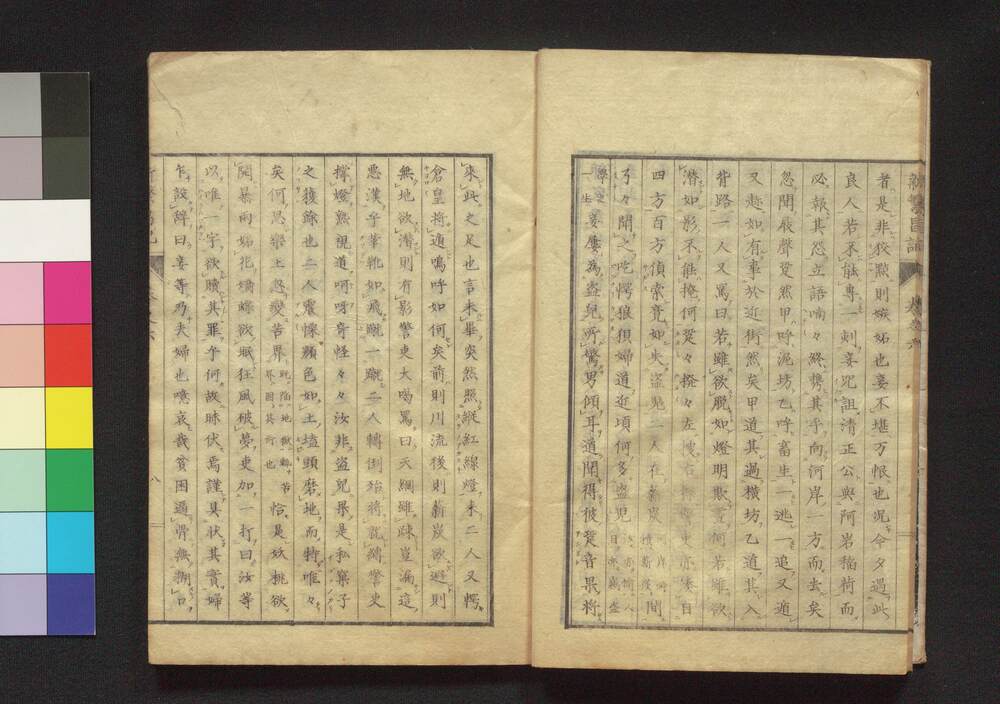 者是非狡黠則嫉妬也妾不堪万恨也况今夕過此
良人若不能專一刻妾咒詛清正公與阿岩稲荷而
必報其怨立語喃々終携其手向河岸一方而去矣
忽聞跫聲跫然甲呼泥坊乙呼畜生一逃一追又遁
又趂如有事於近街然矣甲道其過横坊乙道其入
背路一人又罵曰若雖欲脱如燈明欺何若雖欲
潜如影不能掩何跫々撥々左
四方百方偵索竟如失盗児二人在薪炭間
弓々聞之吃愕狼狽婦道近頃何多盗児
妾屡為盗兒所驚男傾耳道聞得彼跫音果将
來此之足也言未畢突然照縱紅線燈来二人又愕
倉皇将遁嗚呼如何矣前則川流後則薪炭欲遁則
無地欲潜則有影警吏大喝罵曰天網雖疎豈漏這
悪漢乎革靴如飛蹴一蹴二人轉倒殆将就縛警吏
撑燈熟視道呵呀奇怪々々汝非盗兒果是私窠子
之獲餘也二人震慄顔色如土塩頭磨地而特唯々
矣何思樂土忽變苦界恰是妖桃欲
開暴雨妬花嬌蝶欲眠狂風破夢吏加一打曰汝等
以唯一字欲贖其罪乎何故昧伏焉謹具状其實婦
乍設辞曰妾等乃夫婦也噫哀哉貧困逼骨無糊口
八